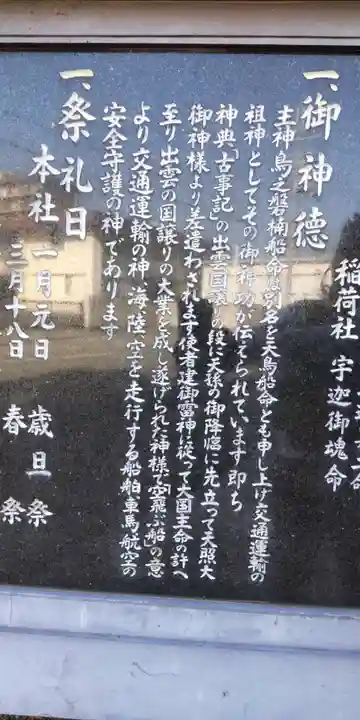 稲荷社 宇迦御魂命
一、御神徳
主神鳥之磐楠船命は別名を天鳥船命とも申し上げ交通運輸の
祖神としてその御神功が伝えられています即ち
神典「古事記」の出雲国譲りの段に天孫の御降臨に先立って天照大
御神様より差遣わされます使者建御雷神に従って大国主命の許へ
至り出雲の国譲りの大業を成し遂げられた神様で「空飛ぶ船」の意
より交通運輸の神、海、陸、空を走行する船舶、車馬、航空の
安全守護の神であります
一、祭礼日
本社 一月元日 歳旦祭
三月十八日 春祭